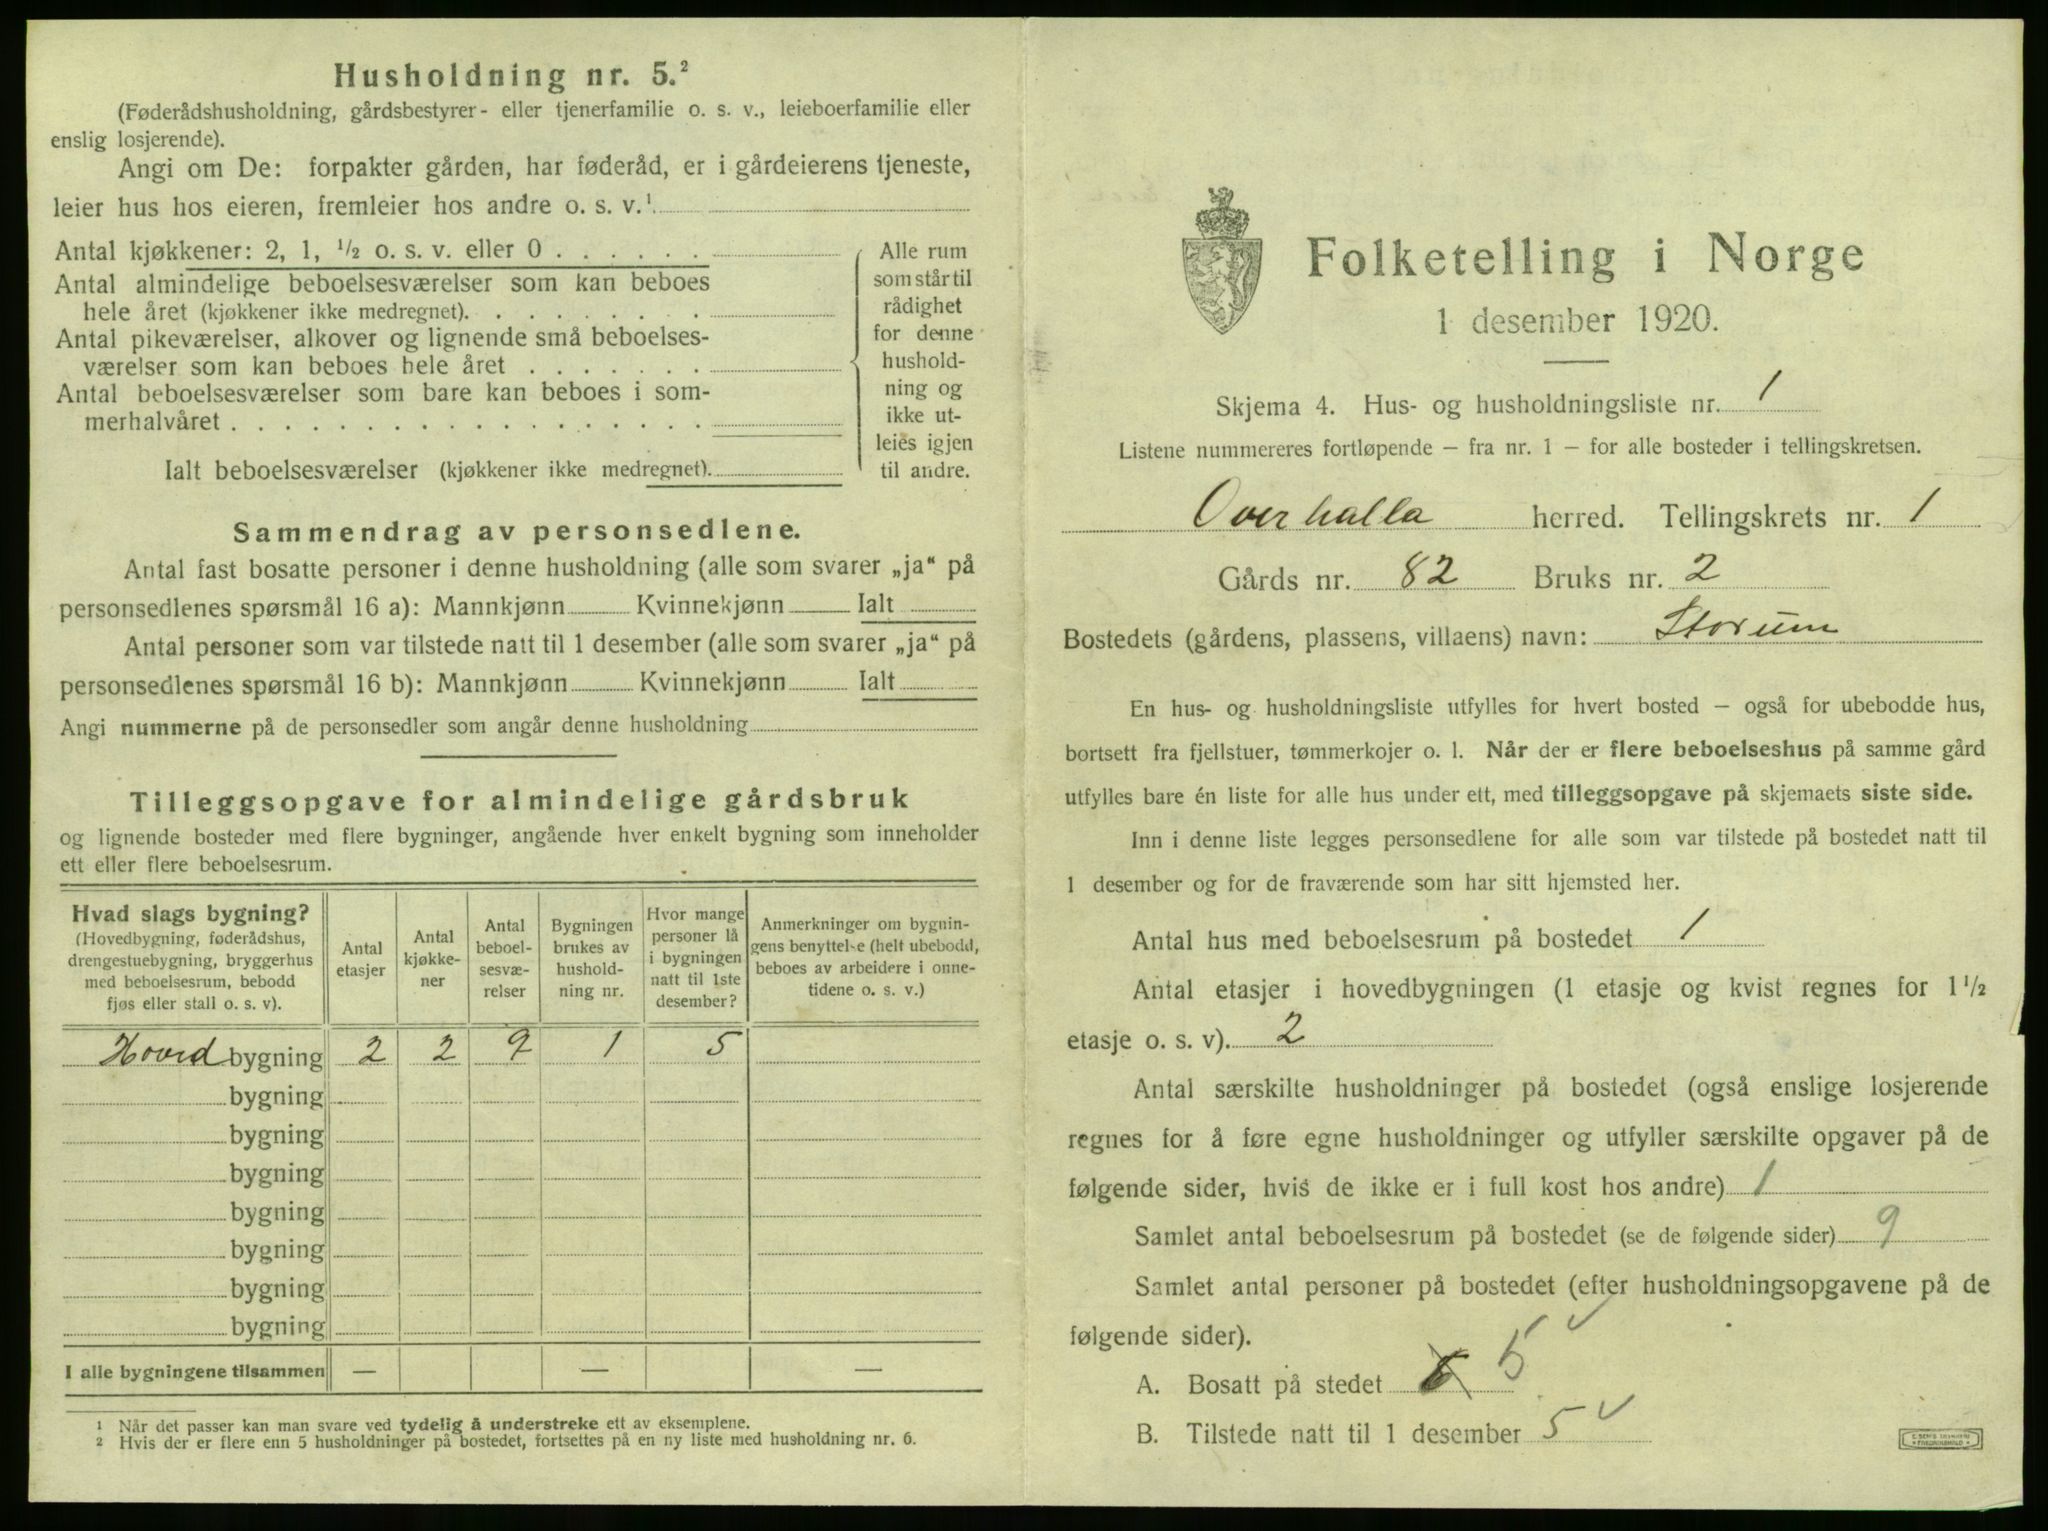 Husholdning nr. 5.²
(Føderådshusholdning, gårdsbestyrer- eller tjenerfamilie o. s. v., leieboerfamilie eller
enslig losjerende).
Angi om De: forpakter gården, har føderåd, er i gårdeierens tjeneste,
leier hus hos eieren, fremleier hos andre o. s. v.¹
Antal kjøkkener: 2, 1, ½ o. s. v. eller 0 . . . . . .
Antal almindelige beboelsesværelser som kan beboes
hele året (kjøkkener ikke medregnet). . . . . . . .
Antal pikeværelser, alkover og lignende små beboelses-
værelser som kan beboes hele året . . . . . . .
Antal beboelsesværelser som bare kan beboes i som-
merhalvåret . . . . . . . . . . . . . . . . . .
Ialt beboelsesværelser (kjøkkener ikke medregnet).
Alle rum
som står til
rådighet
for denne
hushold-
ning og
ikke ut-
leies igjen
til andre.
Sammendrag av personsedlene.
Antal fast bosatte personer i denne husholdning (alle som svarer „ja“ på
personsedlenes spørsmål 16 a): Mannkjønn Kvinnekjønn Ialt
Antal personer som var tilstede natt til 1 desember (alle som svarer „ja“ på
personsedlenes spørsmål 16 b): Mannkjønn Kvinnekjønn Ialt
Angi nummerne på de personsedler som angår denne husholdning
Tilleggsopgave for almindelige gårdsbruk
og lignende bosteder med flere bygninger, angående hver enkelt bygning som inneholder
ett eller flere beboelsesrum.
Hvad slags bygning?
(Hovedbygning, føderådshus,
drengestuebygning, bryggerhus
med beboelsesrum, bebodd
fjøs eller stall o. s. v).
Antal
etasjer
Antal
kjøkke-
ner
Antal
beboel-
sesvæ-
relser
Bygningen
brukes av
hushold-
ning nr.
Hvor mange
personer lå
i bygningen
natt til 1ste
desember?
Anmerkninger om bygnin-
gens benyttelse (helt ubebodd,
beboes av arbeidere i onne-
tidene o. s. v.)
Hoved bygning 2 2 9 1 5
bygning
bygning
bygning
bygning
bygning
bygning
bygning
I alle bygningene tilsammen — — —
¹ Når det passer kan man svare ved tydelig å understreke ett av eksemplene.
² Hvis der er flere enn 5 husholdninger på bostedet, fortsettes på en ny liste med husholdning nr. 6.
Folketelling i Norge
1 desember 1920.
Skjema 4. Hus- og husholdningsliste nr. 1
Listene nummereres fortløpende – fra nr. 1 – for alle bosteder i tellingskretsen.
Overhalla herred. Tellingskrets nr. 1
Gårds nr. 82 Bruks nr. 2
Bostedets (gårdens, plassens, villaens) navn: Storum
En hus- og husholdningsliste utfylles for hvert bosted – også for ubebodde hus,
bortsett fra fjellstuer, tømmerkojer o. l. Når der er flere beboelseshus på samme gård
utfylles bare én liste for alle hus under ett, med tilleggsopgave på skjemaets siste side.
Inn i denne liste legges personsedlene for alle som var tilstede på bostedet natt til
1 desember og for de fraværende som har sitt hjemsted her.
Antal hus med beboelsesrum på bostedet 1
Antal etasjer i hovedbygningen (1 etasje og kvist regnes for 1½
etasje o. s. v). 2
Antal særskilte husholdninger på bostedet (også enslige losjerende
regnes for å føre egne husholdninger og utfyller særskilte opgaver på de
følgende sider, hvis de ikke er i full kost hos andre) 1
Samlet antal beboelsesrum på bostedet (se de følgende sider) 9
Samlet antal personer på bostedet (efter husholdningsopgavene på de
følgende sider).
A. Bosatt på stedet 6 5 ✓
B. Tilstede natt til 1 desember 5 ✓